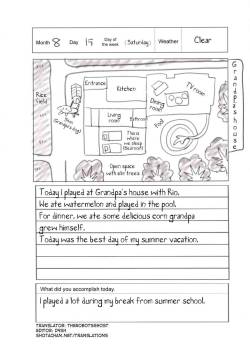 Month 8 Day 19 Day of the week (Saturday) Weather Clear
Grandpa's house
Entrance
Kitchen
TV room
Rice field
Dining room
(Grandpa's dog)
Living room
Bathroom
Pool
There's where we sleep (Bedroom)
Open space with elm trees
Today I played at Grandpa's house with Rin.
We ate watermelon and played in the pool.
For dinner, we ate some delicious corn grandpa
grew himself.
Today was the best day of my summer vacation.
What did you accomplish today.
I played a lot during my break from summer school.
TRANSLATOR: THEROBOTSGHOST
SHOTACHAN.NET/TRANSLATIONS